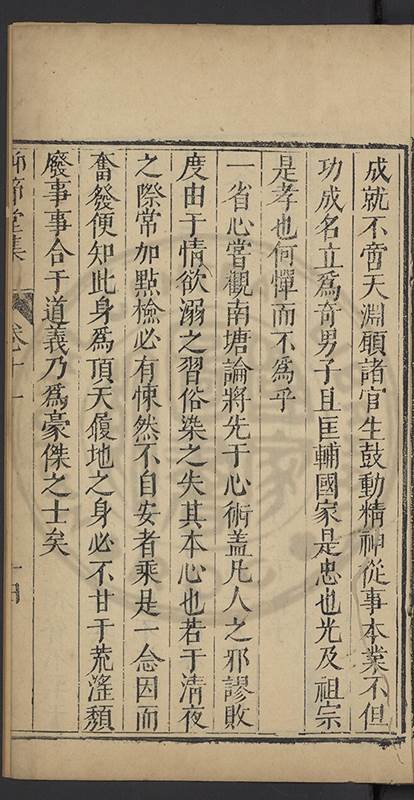 成就不啻天淵願諸官生鼓動精神從事本業不但
功成名立爲奇男子且匡輔國家是忠也光及祖宗
是孝也何憚而不爲乎
一省心嘗觀南塘論將先于心術盖凡人之邪謬敗
度由于情欲溺之習俗染之失其本心也若于清夜
之際常加點檢必有悚然不自安者乘是一念因而
奮發便知此身爲頂天履地之身必不甘于荒滛頹
廢事事合于道義乃爲豪傑之士矣
堂集
卷十一
十四